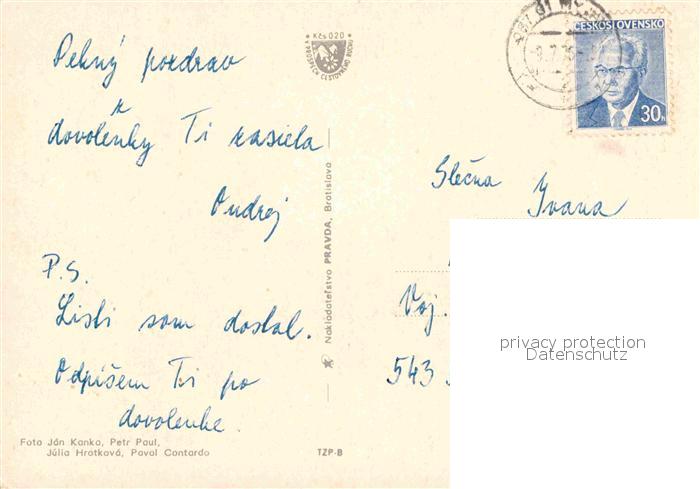 Kčs 0·20
V PROSPECH CESTOVNÉHO RUCHU
ČESKOSLOVENSKO
30h
Pekný pozdrav
z
dovolenky Ti zasiela
Ondrej
P.S.
Listi som dostal.
Odpíšem Ti po
dovolenke.
Foto Ján Kanka, Petr Paul,
Júlia Hrotková, Pavol Contardo
TZP-B
Nakladateľstvo PRAVDA, Bratislava
Slečna Ivana
Voj.
543
privacy protection
Datenschutz